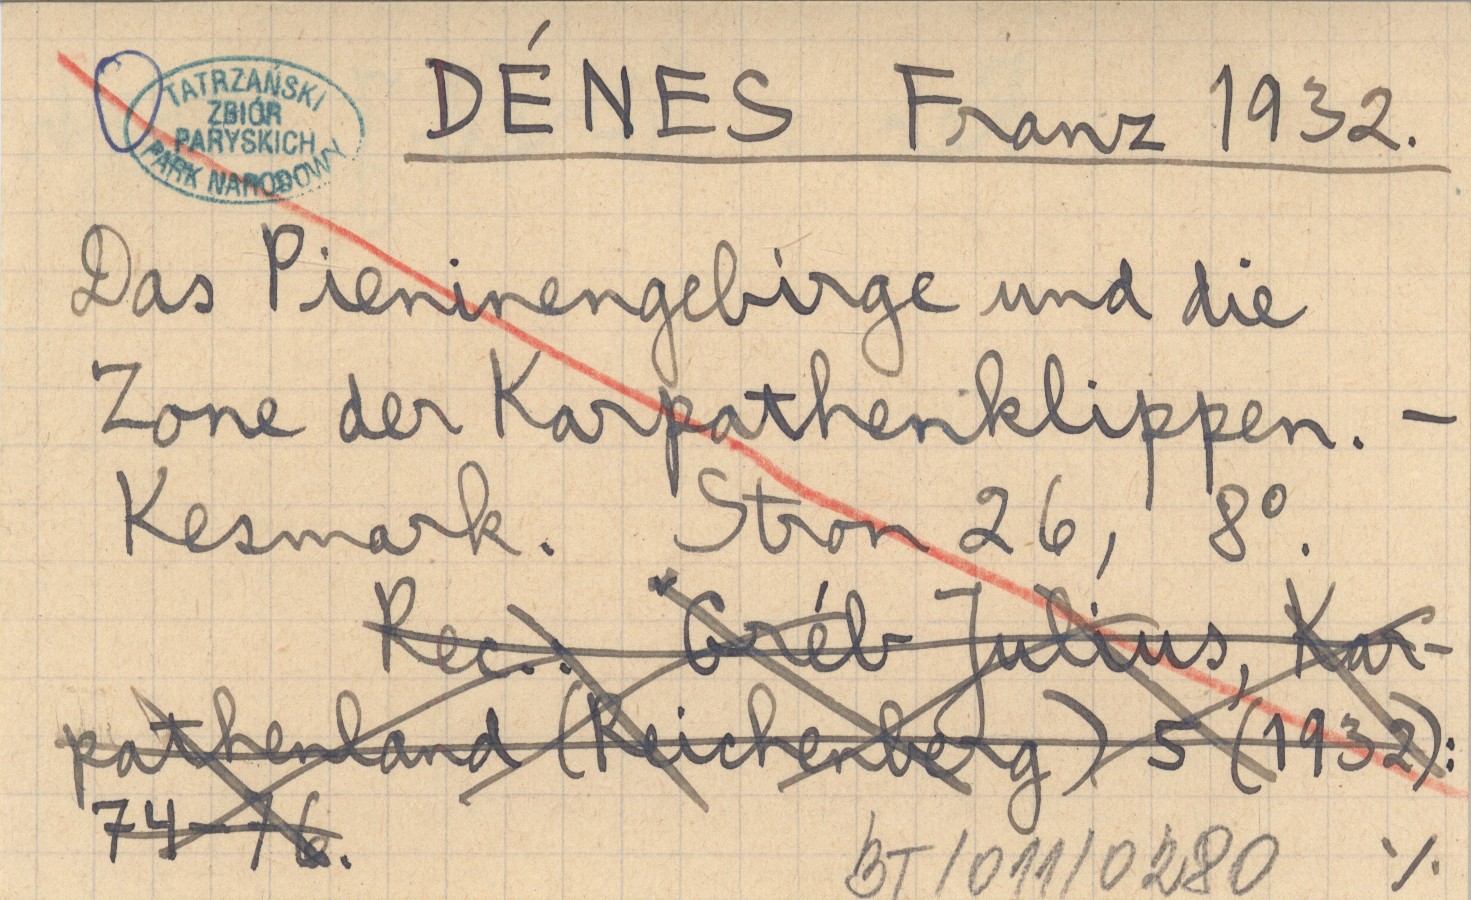 TATRZAŃSKI
ZBIÓR
PARYSKICH
PARK NARODOWY
DÉNES Franz 1932.
Das Pieninengebirge und die
Zone der Karpathenklippen. –
Kesmark. Stron 26, 8°.
Rec.: Gréb Julius, Kar-
pathenland (Reichenberg) 5 (1932):
74–76.
BT/011/0280 ·/.